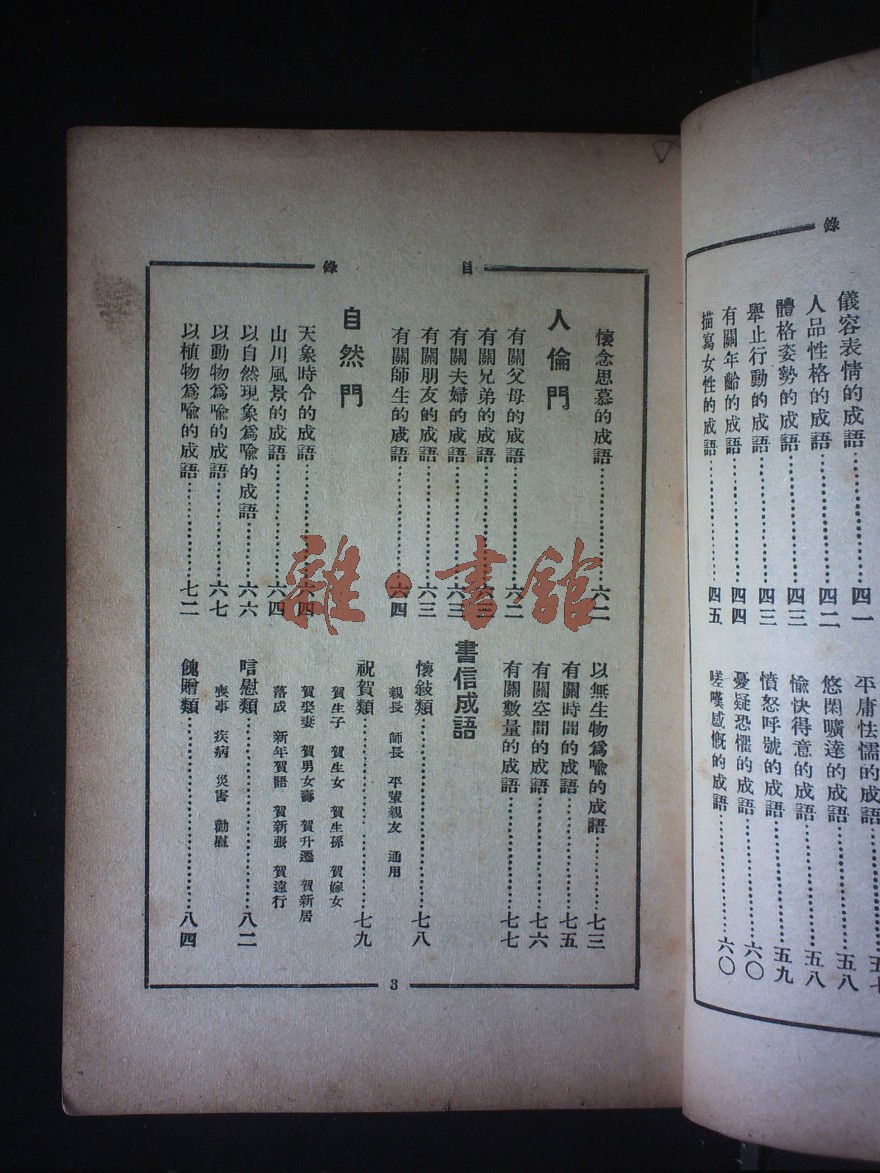 錄
儀容表情的成語…………四一
人品性格的成語…………四二
體格姿勢的成語…………四三
舉止行動的成語…………四三
有關年齡的成語…………四四
描寫女性的成語…………四五
平庸怯懦的成語…………五七
悠閑曠達的成語…………五八
愉快得意的成語…………五八
憤怒呼號的成語…………五九
憂疑恐懼的成語…………六〇
嗟嘆感慨的成語…………六〇
目錄
懷念思慕的成語…………六二
人倫門
有關父母的成語…………六二
有關兄弟的成語…………六三
有關夫婦的成語…………六三
有關朋友的成語…………六三
有關師生的成語…………六四
自然門
天象時令的成語…………六四
山川風景的成語…………六四
以自然現象爲喻的成語…………六六
以動物爲喻的成語…………六七
以植物爲喻的成語…………七二
以無生物爲喻的成語…………七三
有關時間的成語…………七五
有關空間的成語…………七六
有關數量的成語…………七七
書信成語
懷敍類…………七八
親長 師長 平輩親友 通用
祝賀類…………七九
賀生子 賀生女 賀生孫 賀嫁女
賀娶妻 賀男女壽 賀升遷 賀新居
落成 新年賀語 賀新張 賀遠行
唁慰類…………八二
喪事 疾病 災害 勸慰
餽贈類…………八四
3
雜·書館